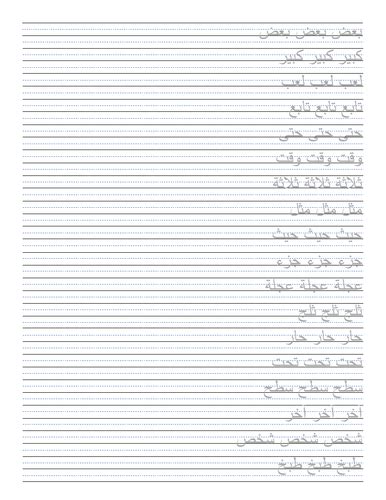 بعض بعض بعض
كبير كبير كبير
لعب لعب لعب
تابع تابع تابع
حتى حتى حتى
وقت وقت وقت
ثلاثة ثلاثة ثلاثة
مثل مثل مثل
حيث حيث حيث
جزء جزء جزء
عجلة عجلة عجلة
ثلج ثلج ثلج
حار حار حار
تحت تحت تحت
سطح سطح سطح
آخر آخر آخر
شخص شخص شخص
طبخ طبخ طبخ